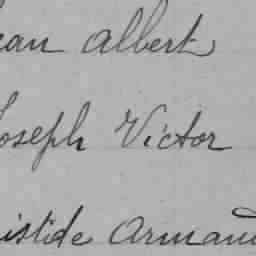 ean Albert
Joseph Victor
istide Armand